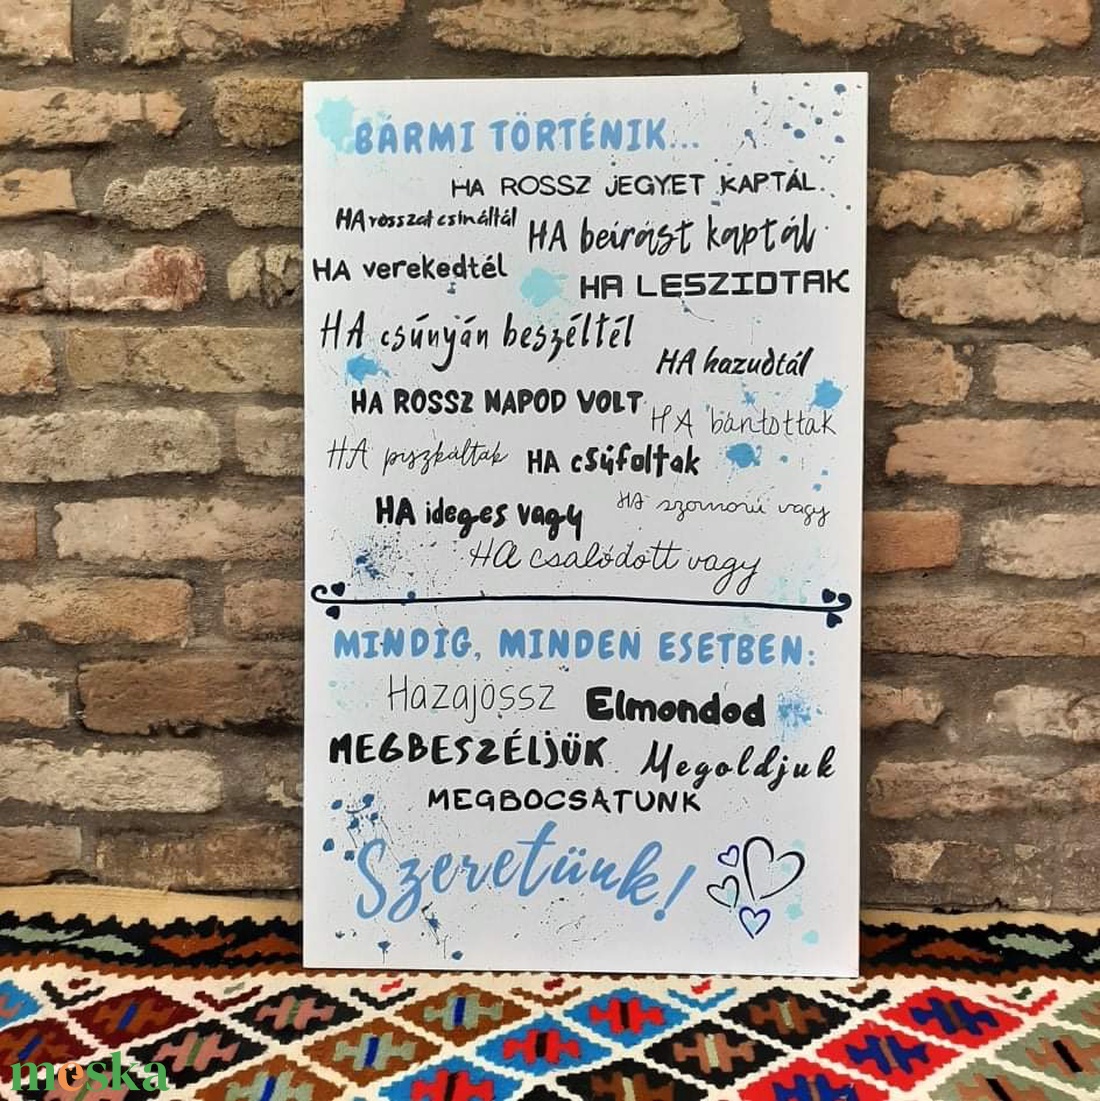 BÁRMI TÖRTÉNIK...
HA ROSSZ JEGYET KAPTÁL.
HA rosszat csináltál
HA beírást kaptál
HA verekedtél
HA LESZIDTAK
HA csúnyán beszéltél
HA hazudtál
HA ROSSZ NAPOD VOLT
HA bántottak
HA piszkáltak
HA csúfoltak
HA ideges vagy
HA szomorú vagy
HA csalódott vagy
MINDIG, MINDEN ESETBEN:
Hazajössz Elmondod
MEGBESZÉLJÜK Megoldjuk
MEGBOCSÁTUNK
Szeretünk!
meska